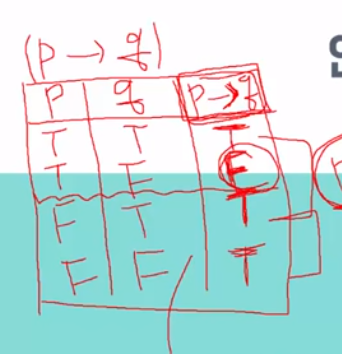 (p → q)
p q p→q
T T T
T F F
F T T
F F T